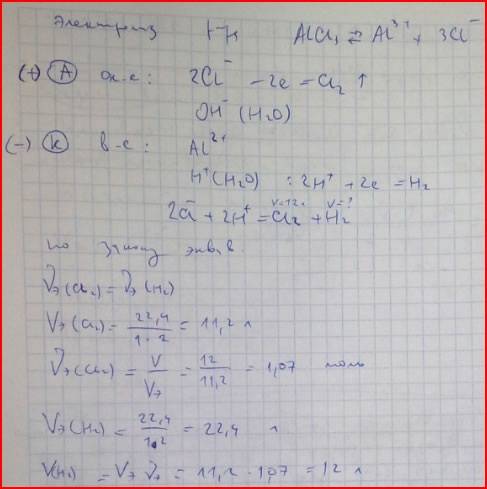 Электролиз р-р AlCl₃ ⇄ Al³⁺ + 3Cl⁻
(+) (A) ок-е: 2Cl⁻ - 2e = Cl₂ ↑
OH⁻ (H₂O)
(-) (K) в-е: Al³⁺
H⁺(H₂O) : 2H⁺ + 2e = H₂
V=12л V=?
2Cl⁻ + 2H⁺ = Cl₂ + H₂
по закону экв-в
ν̃э(Cl₂) = ν̃э(H₂)
Vэ(Cl₂) = 22,4 / 1·2 = 11,2 л
ν̃э(Cl₂) = V / Vэ = 12 / 11,2 = 1,07 моль
Vэ(H₂) = 22,4 / 1·2 = 22,4 л
V(H₂) = Vэ ν̃э = 11,2 · 1,07 = 12 л